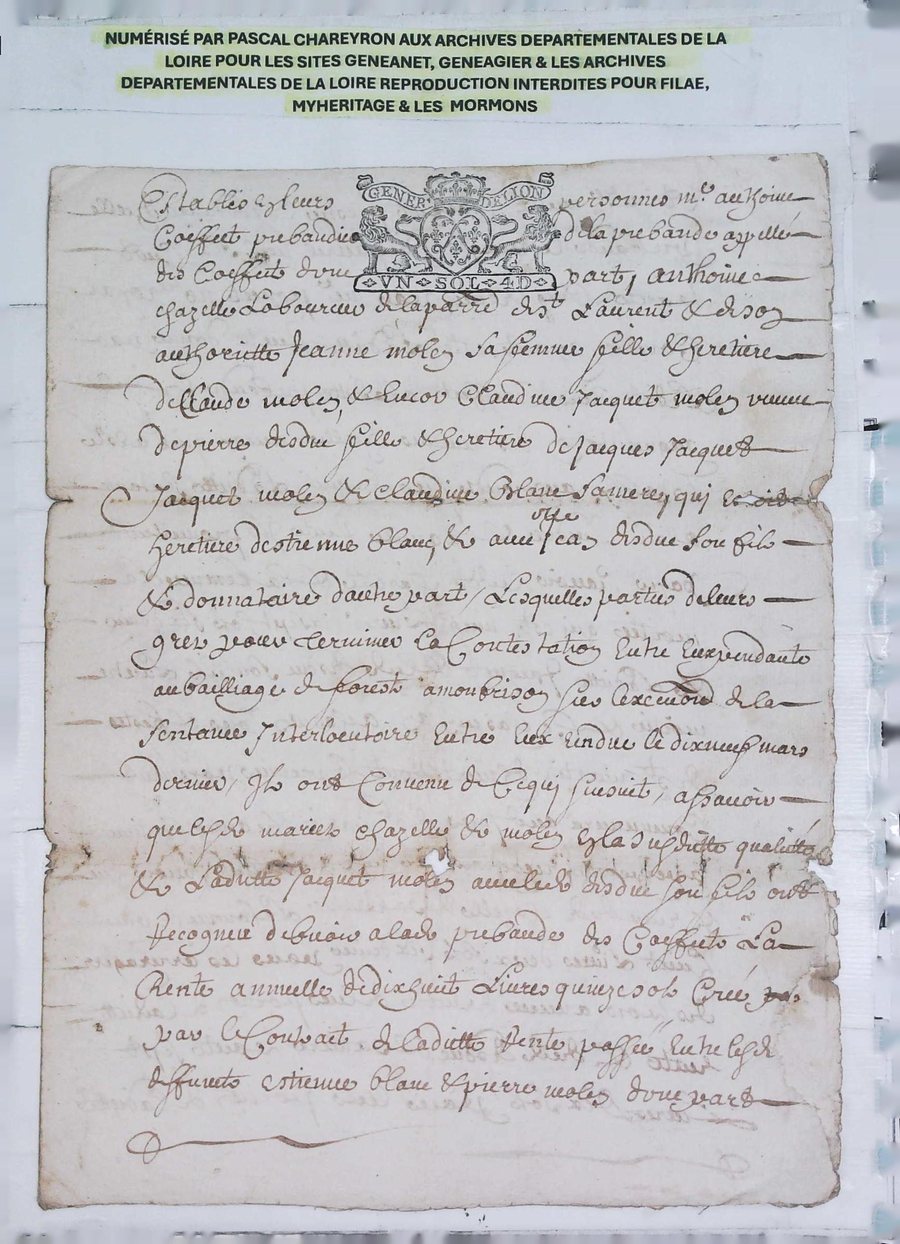 NUMÉRISÉ PAR PASCAL CHAREYRON AUX ARCHIVES DEPARTEMENTALES DE LA
LOIRE POUR LES SITES GENEANET, GENEAGIER & LES ARCHIVES
DEPARTEMENTALES DE LA LOIRE REPRODUCTION INTERDITES POUR FILAE,
MYHERITAGE & LES MORMONS
GENER DELION
VN SOL 4D
Establis Es leurs personnes mre anthoine
Coiffect prebandie de la prebande appellé
des Coeffect dune part, anthoine
chazelle Laboureur de la parre de st Laurent & de son
authoritté Jeanne molen sa femme fille & heretiere
de Claude molen, & Encor Claudine Jacquet molen veuve
de pierre disdue fille & heretiere de Jacques Jacquet
Jacquet molen & claudine blanc sa mere, qui
heretiere destienne blanc, & avec Jean disdue son fils
& donnataire dautre part, Lesquelles parties de leurs
grez pour terminer La Contestation Entre Eux pendante
au bailliage de forest a monbrison sur Lexecution de la
sentance Interlocutoire Entre Eux rendue le dixneuf mars
dernier, Ils ont Convenu de Ce qui suit, assavoir
que lesd mariez chazelle & molen Es la susditte qualitté
& Laditte Jacquet molen avec led disdue son fils ont
Recogneu debvoir a lad prebande des Coeffect La
Rente annuelle de dixhuit Livres quinze sols Créé
par le Contract de laditte Rente passée Entre lesd
deffunct estienne blanc & pierre molen dune part